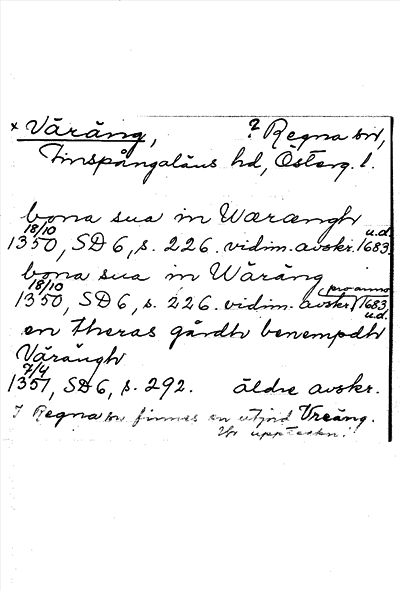 × Väräng, ? Regna sn,
Finspångaläns hd, Österg. l.
bona sua in Waræengh
18/10 u.d.
1350, SD 6, s. 226. vidim. avskr. 1683.
bona sua in Wäräng
18/10 (pro anno
1350, SD 6, s. 226. vidim. avskr.) 1683
u.d.
en theras gårdh benempdh
Värängh
7/4
1351, SD 6, s. 292. äldre avskr.
I Regna sn finnes en utjord Vreäng.